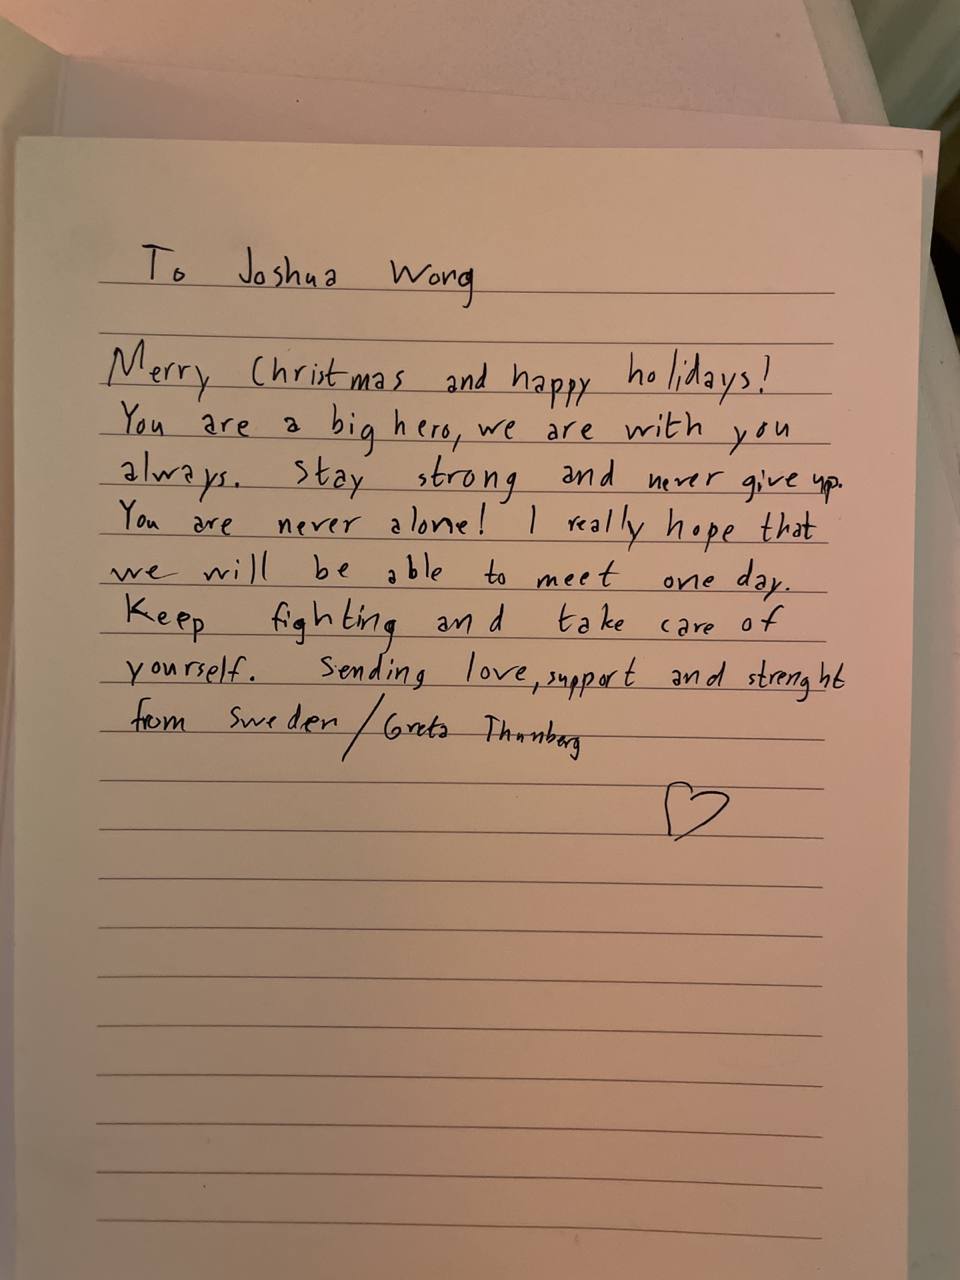 To Joshua Wong
Merry Christmas and happy holidays!
You are a big hero, we are with you
always. Stay strong and never give up.
You are never alone! I really hope that
we will be able to meet one day.
Keep fighting and take care of
yourself. Sending love, support and strenght
from Sweden / Greta Thunberg